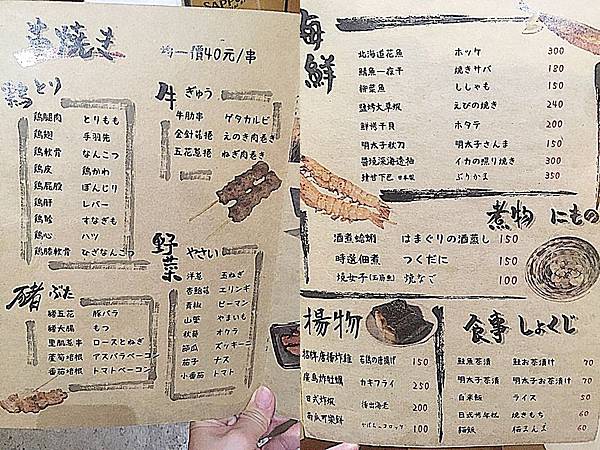 串燒き
均一價40元/串
鶏とり
鶏腿肉 とりもも
鶏翅 手羽先
鶏軟骨 なんこつ
鶏皮 鶏かわ
鶏屁股 ぼんじり
鶏肝 レバー
鶏胗 すなぎも
鶏心 ハツ
鶏膝軟骨 なぎなんこつ
牛ぎゅう
牛肋串 ゲタカルビ
金針菇捲 えのき肉巻き
五花蔥捲 ねぎ肉巻き
豬ぶた
豚バラ
もつ
里肌蔥串 ロースとねぎ
蘆筍培根 アスパラベーコン
番茄培根 トマトベーコン
野菜やさい
洋蔥 玉ねぎ
杏鮑菇 エリンギ
青椒 ピーマン
山藥 やまいも
秋葵 オクラ
節瓜 ズッキーニ
茄子 ナス
小番茄 トマト
海鮮
北海道花魚 ホッケ 300
鯖魚一夜干 焼きサバ 180
柳葉魚 ししゃも 150
鹽烤大草蝦 えびの焼き 240
鮮烤干貝 ホタテ 200
明太子秋刀 明太子さんま 150
醬燒深海透抽 イカの照り焼き 300
ぶりかま 350
煮物 にもの
酒煮蛤蜊 はまぐりの酒蒸し 150
時選佃煮 つくだに 150
焼なで 100
揚物
若鶏の唐揚げ 150
廣島炸牡蠣 カキフライ 250
日式炸蝦 200
南瓜可樂餅 100
食事 しょくじ
鮭魚茶漬 鮭お茶漬け 70
明太子茶漬 明太子お茶漬け 70
白米飯 ライス 50
日式烤年糕 焼きもち 60
貓飯 猫まんま 60